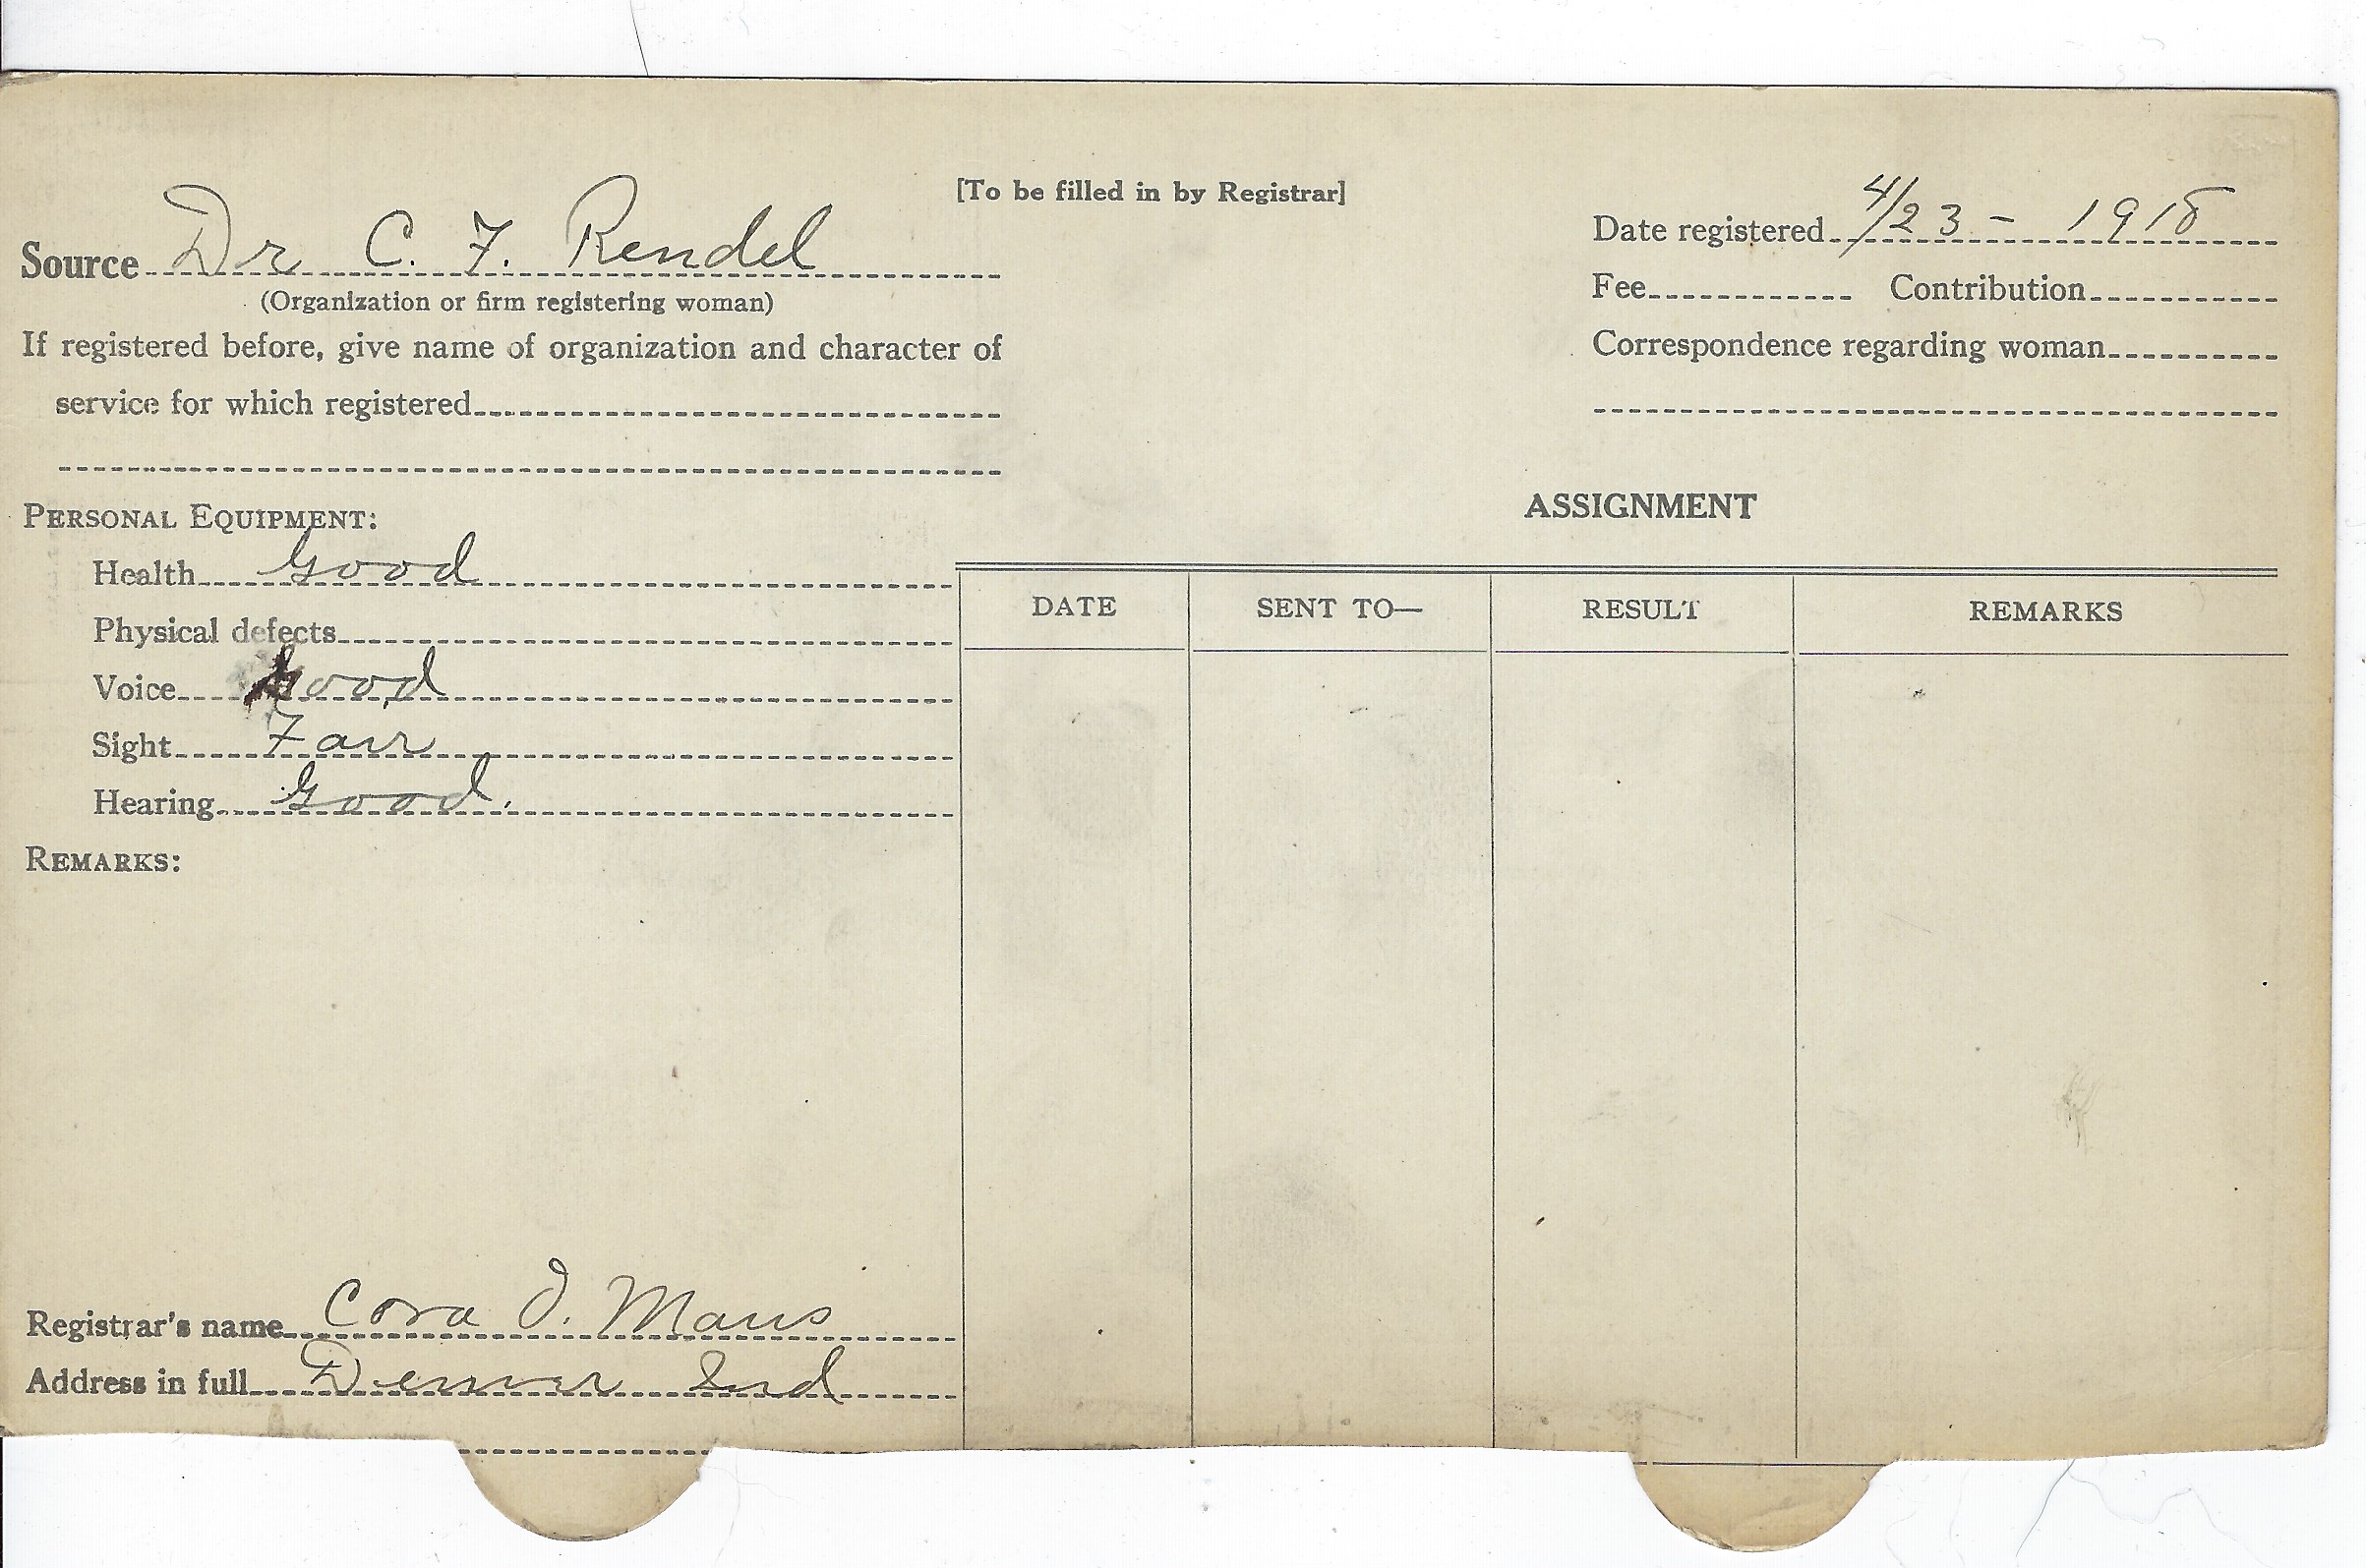 [To be filled in by Registrar]
Source Dr C. F. Rendel
(Organization or firm registering woman)
If registered before, give name of organization and character of
service for which registered
Date registered 4/23 - 1918
Fee Contribution
Correspondence regarding woman
PERSONAL EQUIPMENT:
Health Good
Physical defects
Voice Good
Sight Fair
Hearing Good.
REMARKS:
Registrar's name Cora I. Maus
Address in full Denver Ind
ASSIGNMENT
DATE SENT TO— RESULT REMARKS